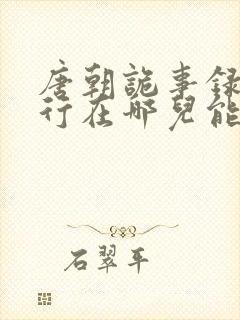 唐朝詭事録
行在哪兒能
石翠平